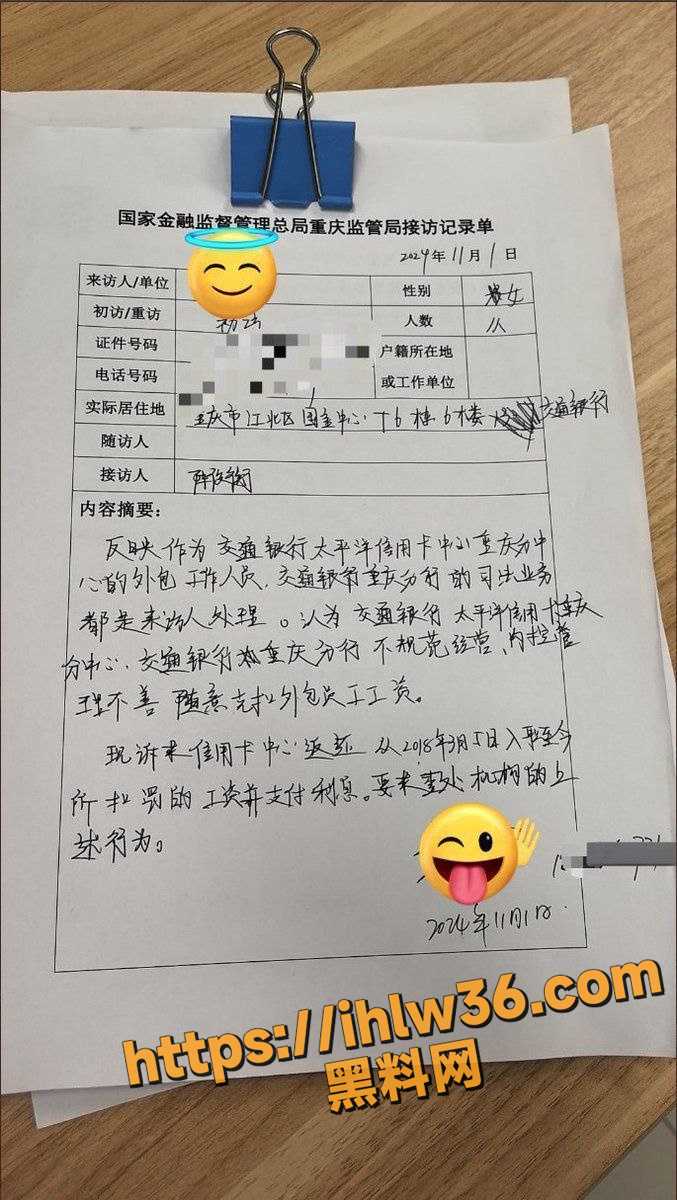 国家金融监督管理总局重庆监管局接访记录单
2024年11月1日
来访人/单位
性别
女
初访/重访
初访
人数
1人
证件号码
户籍所在地
电话号码
或工作单位
实际居住地
重庆市江北区国金中心T6栋6楼 交通银行
随访人
接访人
内容摘要：
反映作为交通银行太平洋信用卡中心重庆分中
心的外包工作人员，交通银行重庆分行的司法业务
都是来访人处理。认为交通银行太平洋信用卡重庆
分中心、交通银行重庆分行不规范经营、内控管
理不善 随意克扣外包员工工资。
现诉求信用卡中心返还从2018年3月5日入职至今
所扣罚的工资并支付利息。要求查处机构的上
述行为。
2024年11月1日.
https://ihlw36.com
黑料网